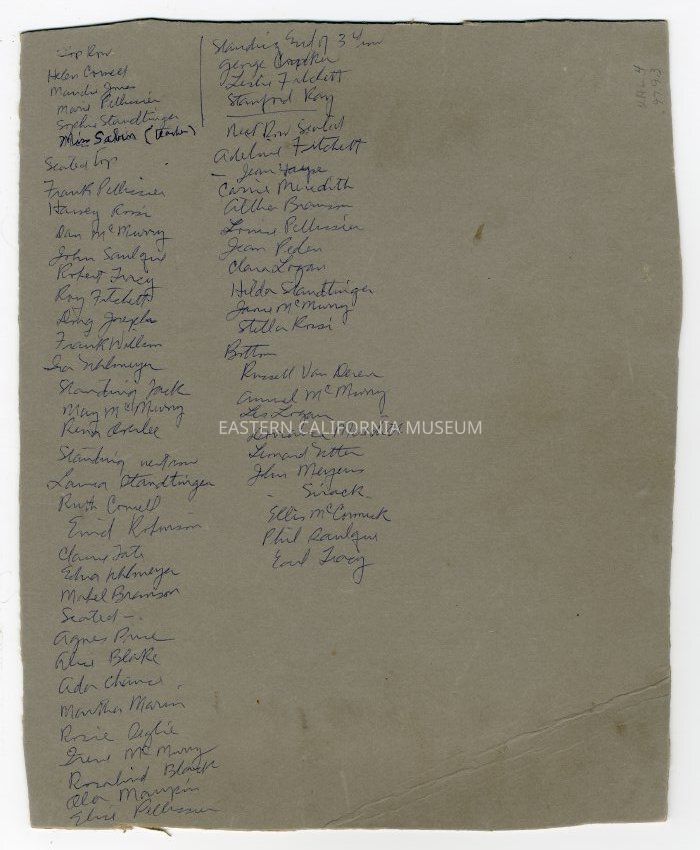 Top Row
Helen Cornell
Maude Jones
Marie Pellissier
Sophie Standtlinger
Miss Sabin (Teacher)
Seated Top
Frank Pellissier
Harvey Rossi
Dan McMurry
John Saulque
Robert Tracy
Roy Fitchett
Doug Joseph
Frank William
Ira Uhlmeyer
Standing Jack
May McMurry
Rena
Standing next row
Laura Standtlinger
Ruth Cornell
Enid Robinson
Claire Tate
Edna Uhlmeyer
Mabel Branson
Seated -.
Agnes
Alice Blake
Ada Chance
Martha Marin
Rosie
Irene McMurry
Rosalind Blanck
Ola Maupin
Elise Pellissier
Standing End of 3
George Crocker
Leslie Fitchett
Stanford Ray
Next Row Seated
Adeline Fitchett
- Jean
Carrie Meredith
Altha Branson
Louise Pellissier
Jean Peden
Clara Logan
Hilda Standtlinger
Jane McMurry
Stella Rossi
Bottom
Russell Van Deren
McMurry
Les Logan
EASTERN CALIFORNIA MUSEUM
Leonard
John
-
Ellis McCormick
Phil Saulque
Earl Tracy
97.9.3